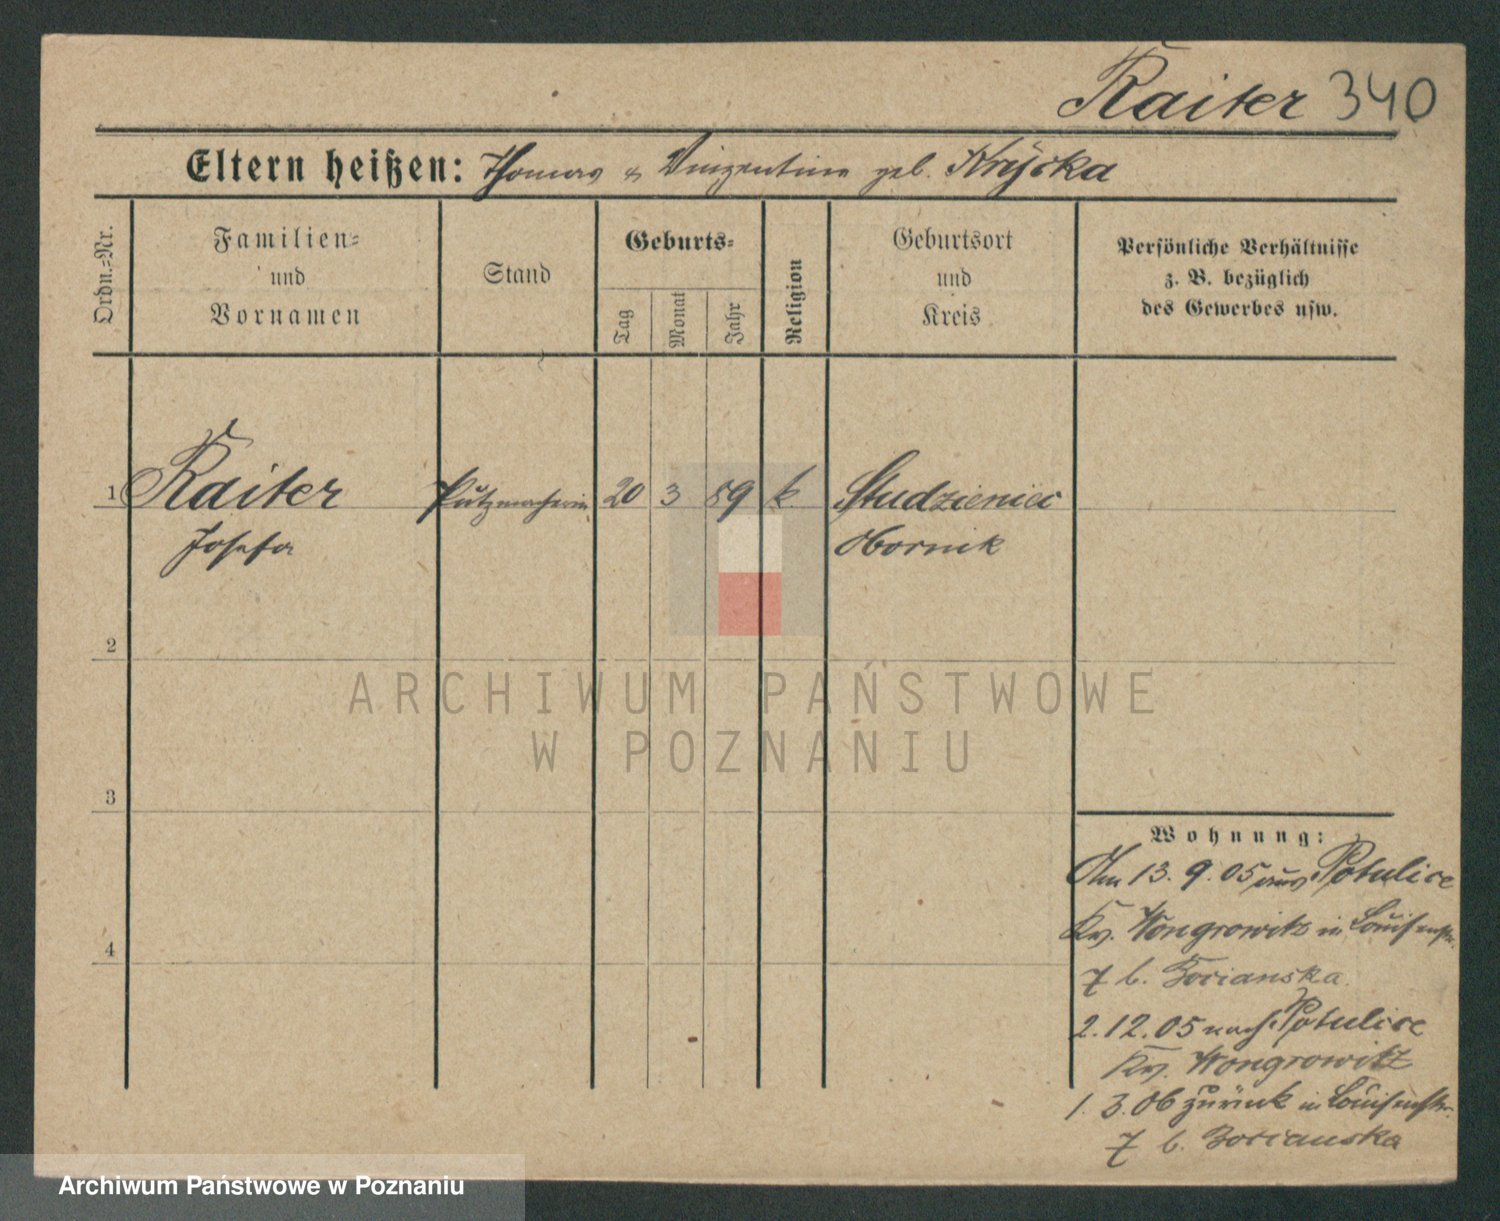 Raiter 340
Eltern heißen: Thomas & Vinzentine geb. Kryska
Ordn.-Nr.
Familien-
und
Vornamen
Stand
Geburts-
Tag
Monat
Jahr
Religion
Geburtsort
und
Kreis
Persönliche Verhältnisse
z. B. bezüglich
des Gewerbes usw.
1 Raiter Putzmacherin 20 3 89 k. Studzieniec
Josefa Obornik
2
3
4
ARCHIWUM PAŃSTWOWE
W POZNANIU
Wohnung:
Am 13. 9. 05 aus Potulice
Kr. Wongrowitz in Louisenstr.
7 b.
2. 12. 05 nach Potulice
Kr. Wongrowitz
1. 3. 06 zurück in Louisenstr.
7 b.
Archiwum Państwowe w Poznaniu